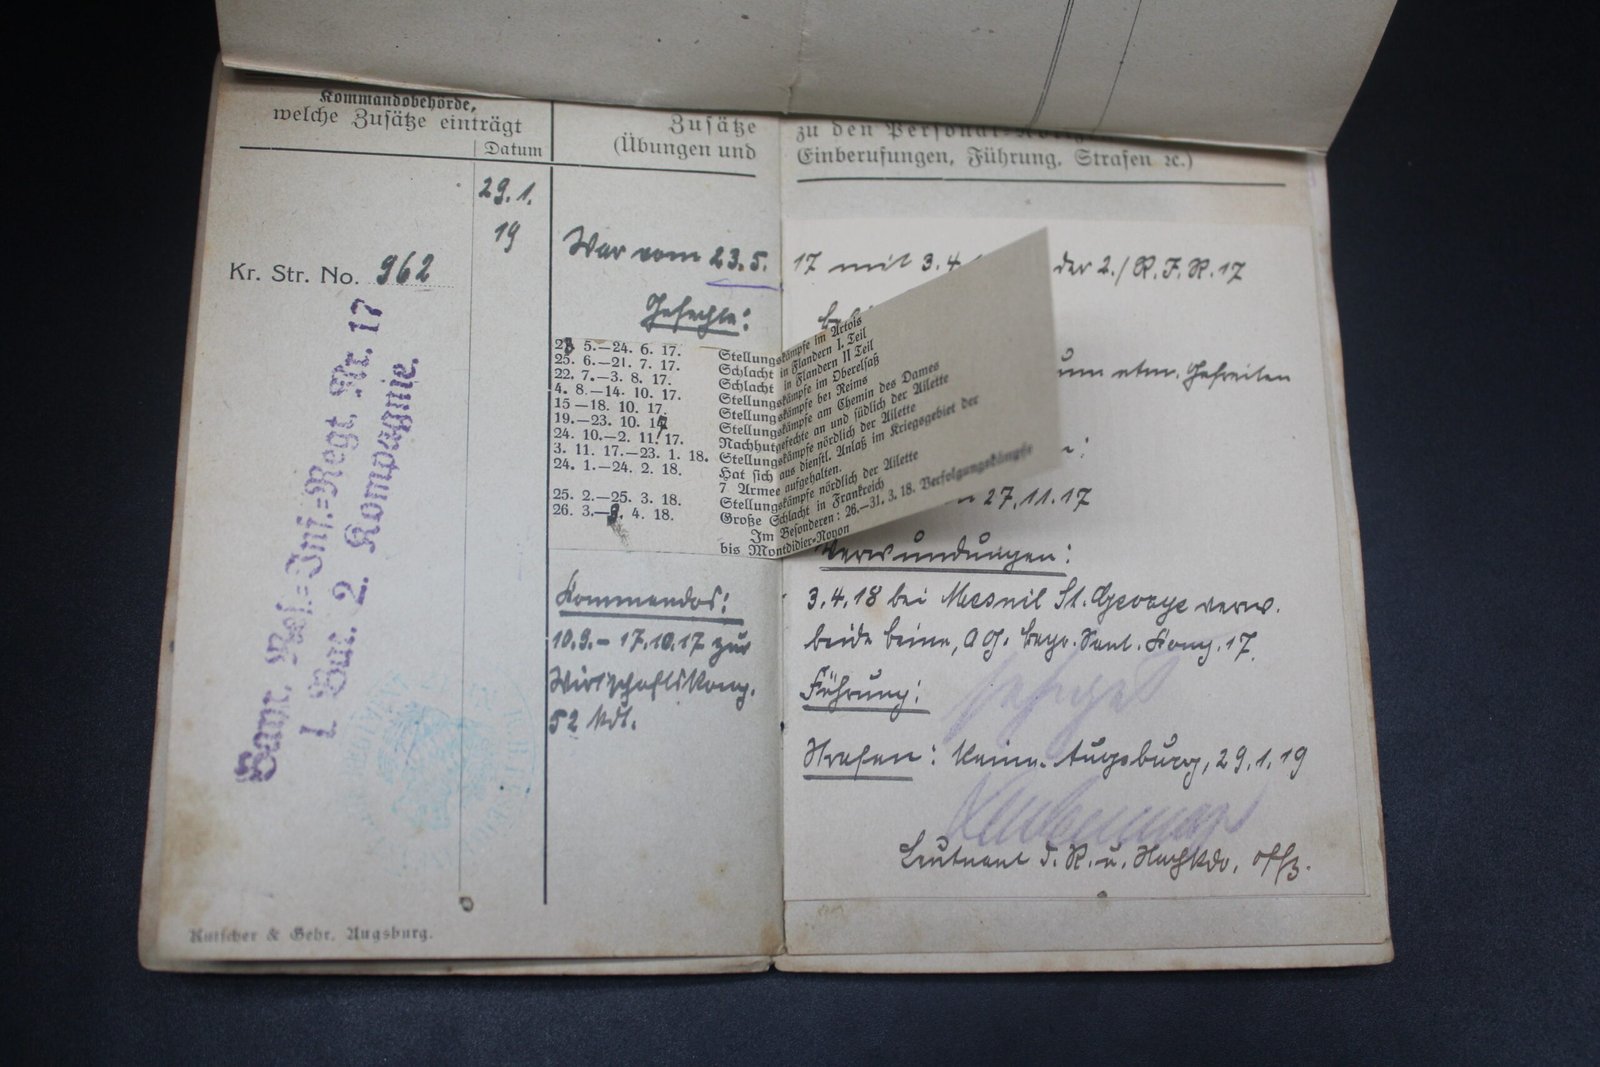 Kommandobehörde,
welche Zusätze einträgt
Datum
Zusätze
(Übungen und
zu den Personal-
Einberufungen, Führung, Strafen ꝛc.)
29. 1.
19
Kr. Str. No. 962
Bayr. Res.=Inf.=Regt. Nr. 17
1. Bat. 2. Kompagnie.
War vom 23. 5. 17 mit 3. 4. der 2./ R. I. R. 17
Gefechte:
zum etm. Gefreiten
5.—24. 6. 17. Stellungskämpfe im Artois
25. 6.—21. 7. 17. Schlacht in Flandern I. Teil
22. 7.—3. 8. 17. Schlacht in Flandern II Teil
4. 8.—14. 10. 17. Stellungskämpfe im Oberelsaß
15—18. 10. 17. Stellungskämpfe bei Reims
19.—23. 10. 17 Stellungskämpfe am Chemin des Dames
24. 10.—2. 11. 17. Nachhutgefechte an und südlich der Ailette
3. 11. 17.—23. 1. 18. Stellungskämpfe nördlich der Ailette
24. 1.—24. 2. 18. Hat sich aus dienstl. Anlaß im Kriegsgebiet der
7 Armee aufgehalten.
25. 2.—25. 3. 18. Stellungskämpfe nördlich der Ailette
26. 3.— 4. 18. Große Schlacht in Frankreich
Im Besonderen: 26.—31. 3. 18. Verfolgungskämpfe
bis Montdidier-Noyon
27. 11. 17
Verwundungen:
3. 4. 18 bei Mesnil St. George verw.
beide Beine, bayr. Sant. Komp. 17.
Kommandos:
10. 9. – 17. 10. 17 zur
Wirtschaftskomp.
52 Kdt.
Führung:
Strafen: Keine. Augsburg, 29. 1. 19
Leutnant d. R. u. Offz.
Kutscher & Gehr, Augsburg.